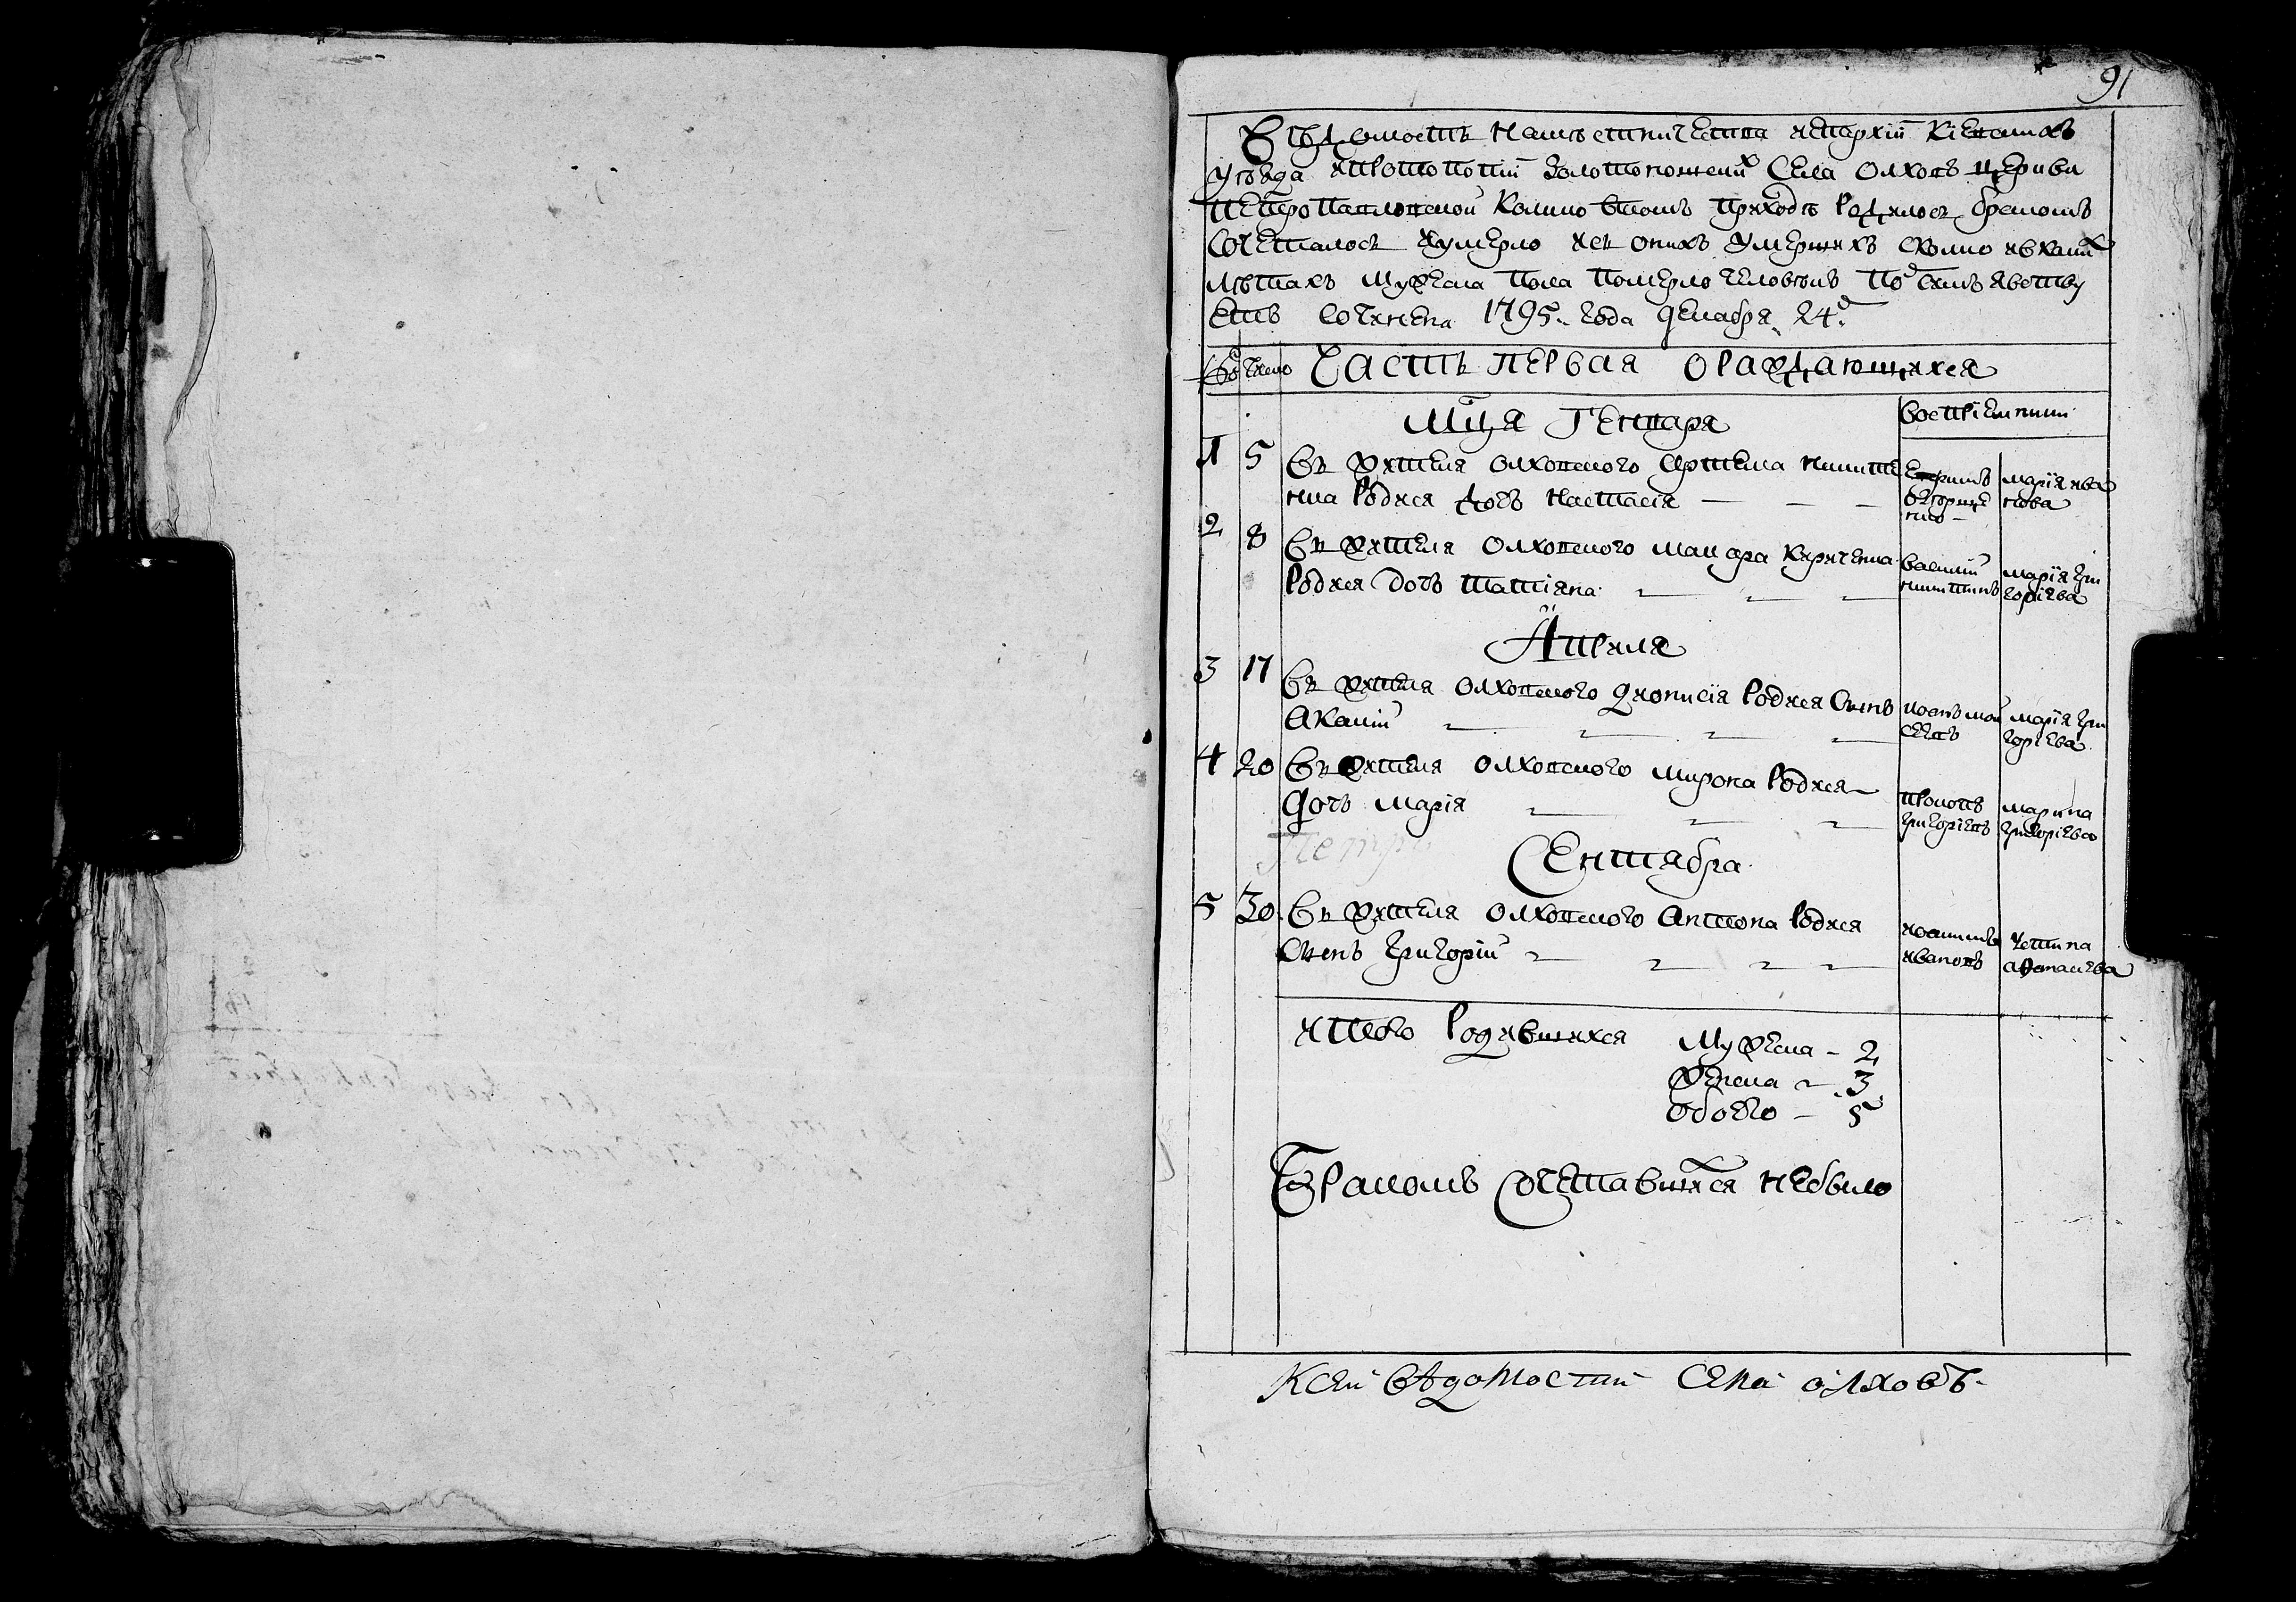 91
Вѣдомость намѣсничества и епархіи Кіевскихъ
уѣзда и протопопіи Золотоноских Села Олховъ церкви
Петропавловской колико втомъ приходѣ родилось бракомъ
Сочеталось и умерло и съ онихъ умершихъ сколко и в каких
лѣтахъ мужеска пола померло человѣкъ под симъ явству
етъ Сочинена 1795. года декабря 24 д
Число Часть первая о раждающихся
Мца Генваря
воспріемники
1 5 Въ жителя Олховского Артема Никите
нка родися дочь Настасія
Марія Ива
нова
2 8 Въ жителя Олховского
родися дочь Татіана
Василий
Никитинъ
Марія Гри
горіева
Априля
3 17 Въ жителя Олховского Дионисія родися Синъ
Акакий
Марія Гри
горіева
4 20 Въ жителя Олховского Мирона родися
дочь Марія
Прокопъ
Григоріевъ
Марина
Григоріева
Петръ
Сентября
5 30. Въ жителя Олховского Антона родися
Синъ Григорий
Иоакимъ
Ивановъ
итого родившихся мужеска – 2
женска – 3
обоего – 5
Бракомъ Сочетавшихся небило
К сей вѣдомости Села Олховъ